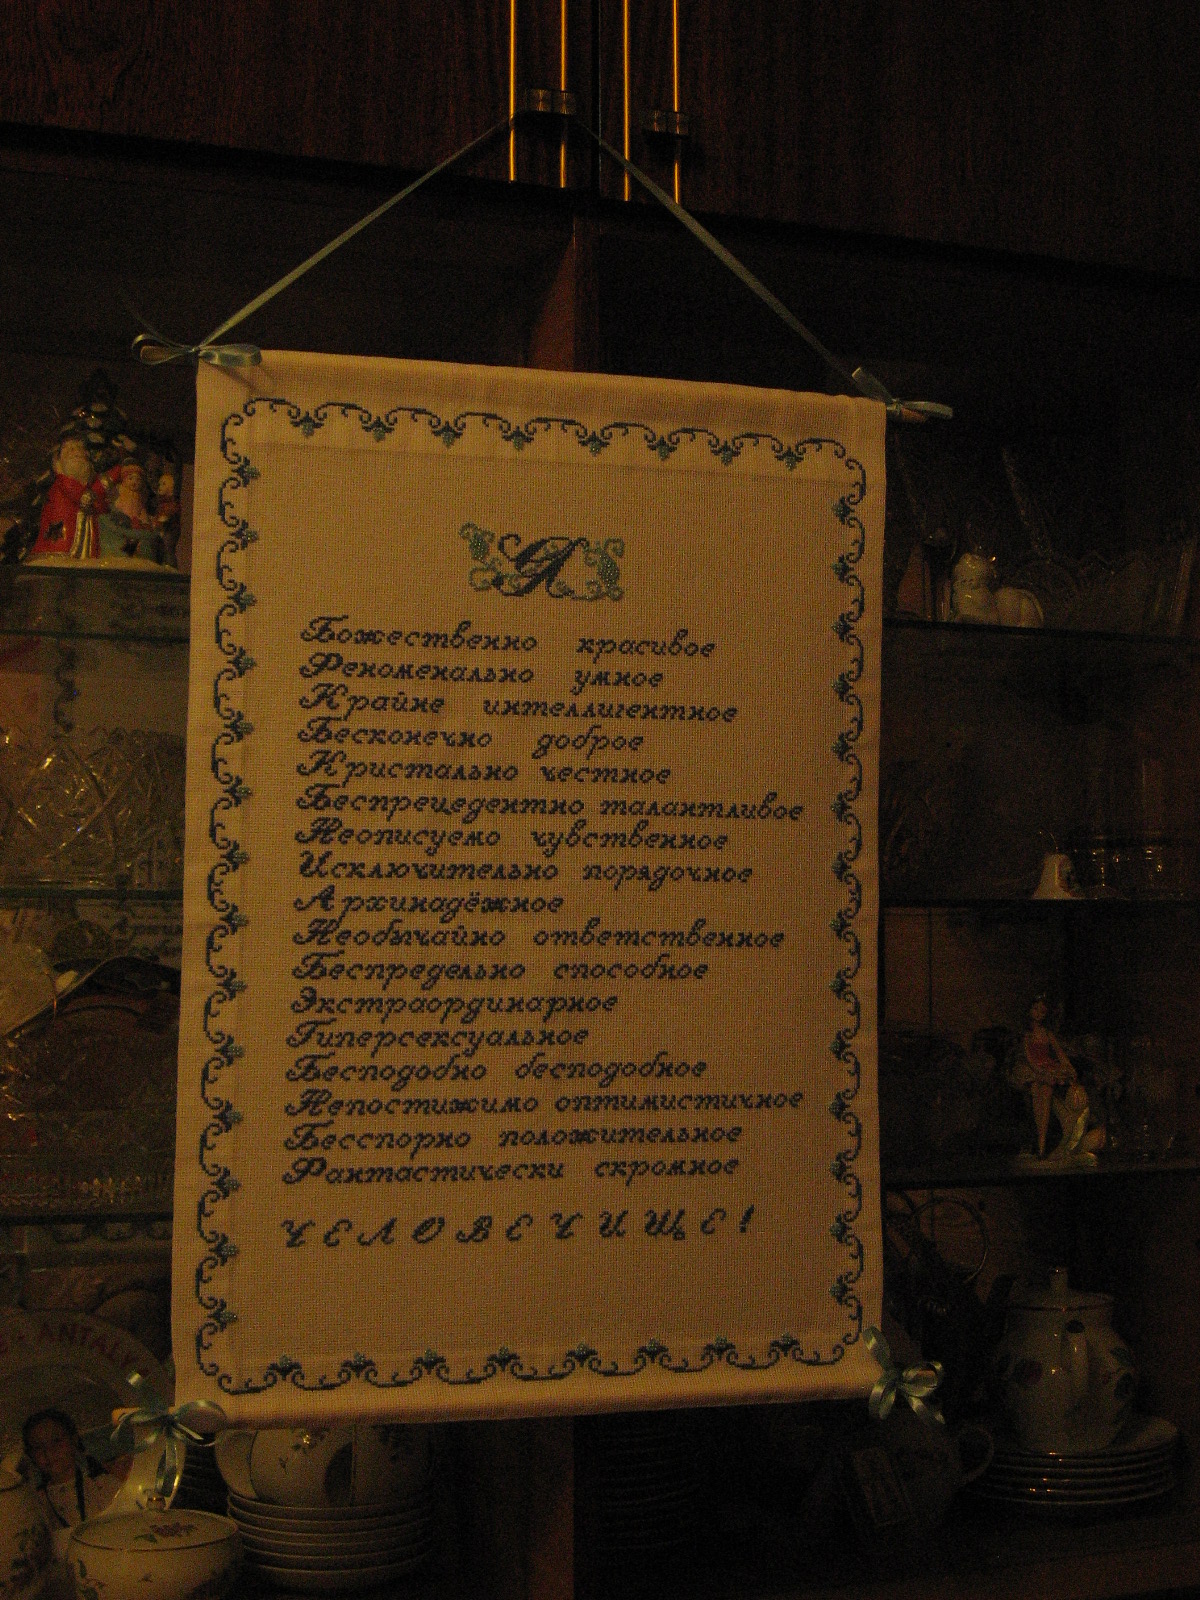 Я
Божественно красивое
Феноменально умное
Крайне интеллигентное
Бесконечно доброе
Кристально честное
Беспрецедентно талантливое
Неописуемо чувственное
Исключительно порядочное
Архинадёжное
Необычайно ответственное
Беспредельно способное
Экстраординарное
Гиперсексуальное
Бесподобно бесподобное
Непостижимо оптимистичное
Бесспорно положительное
Фантастически скромное
ЧЕЛОВЕЧИЩЕ!